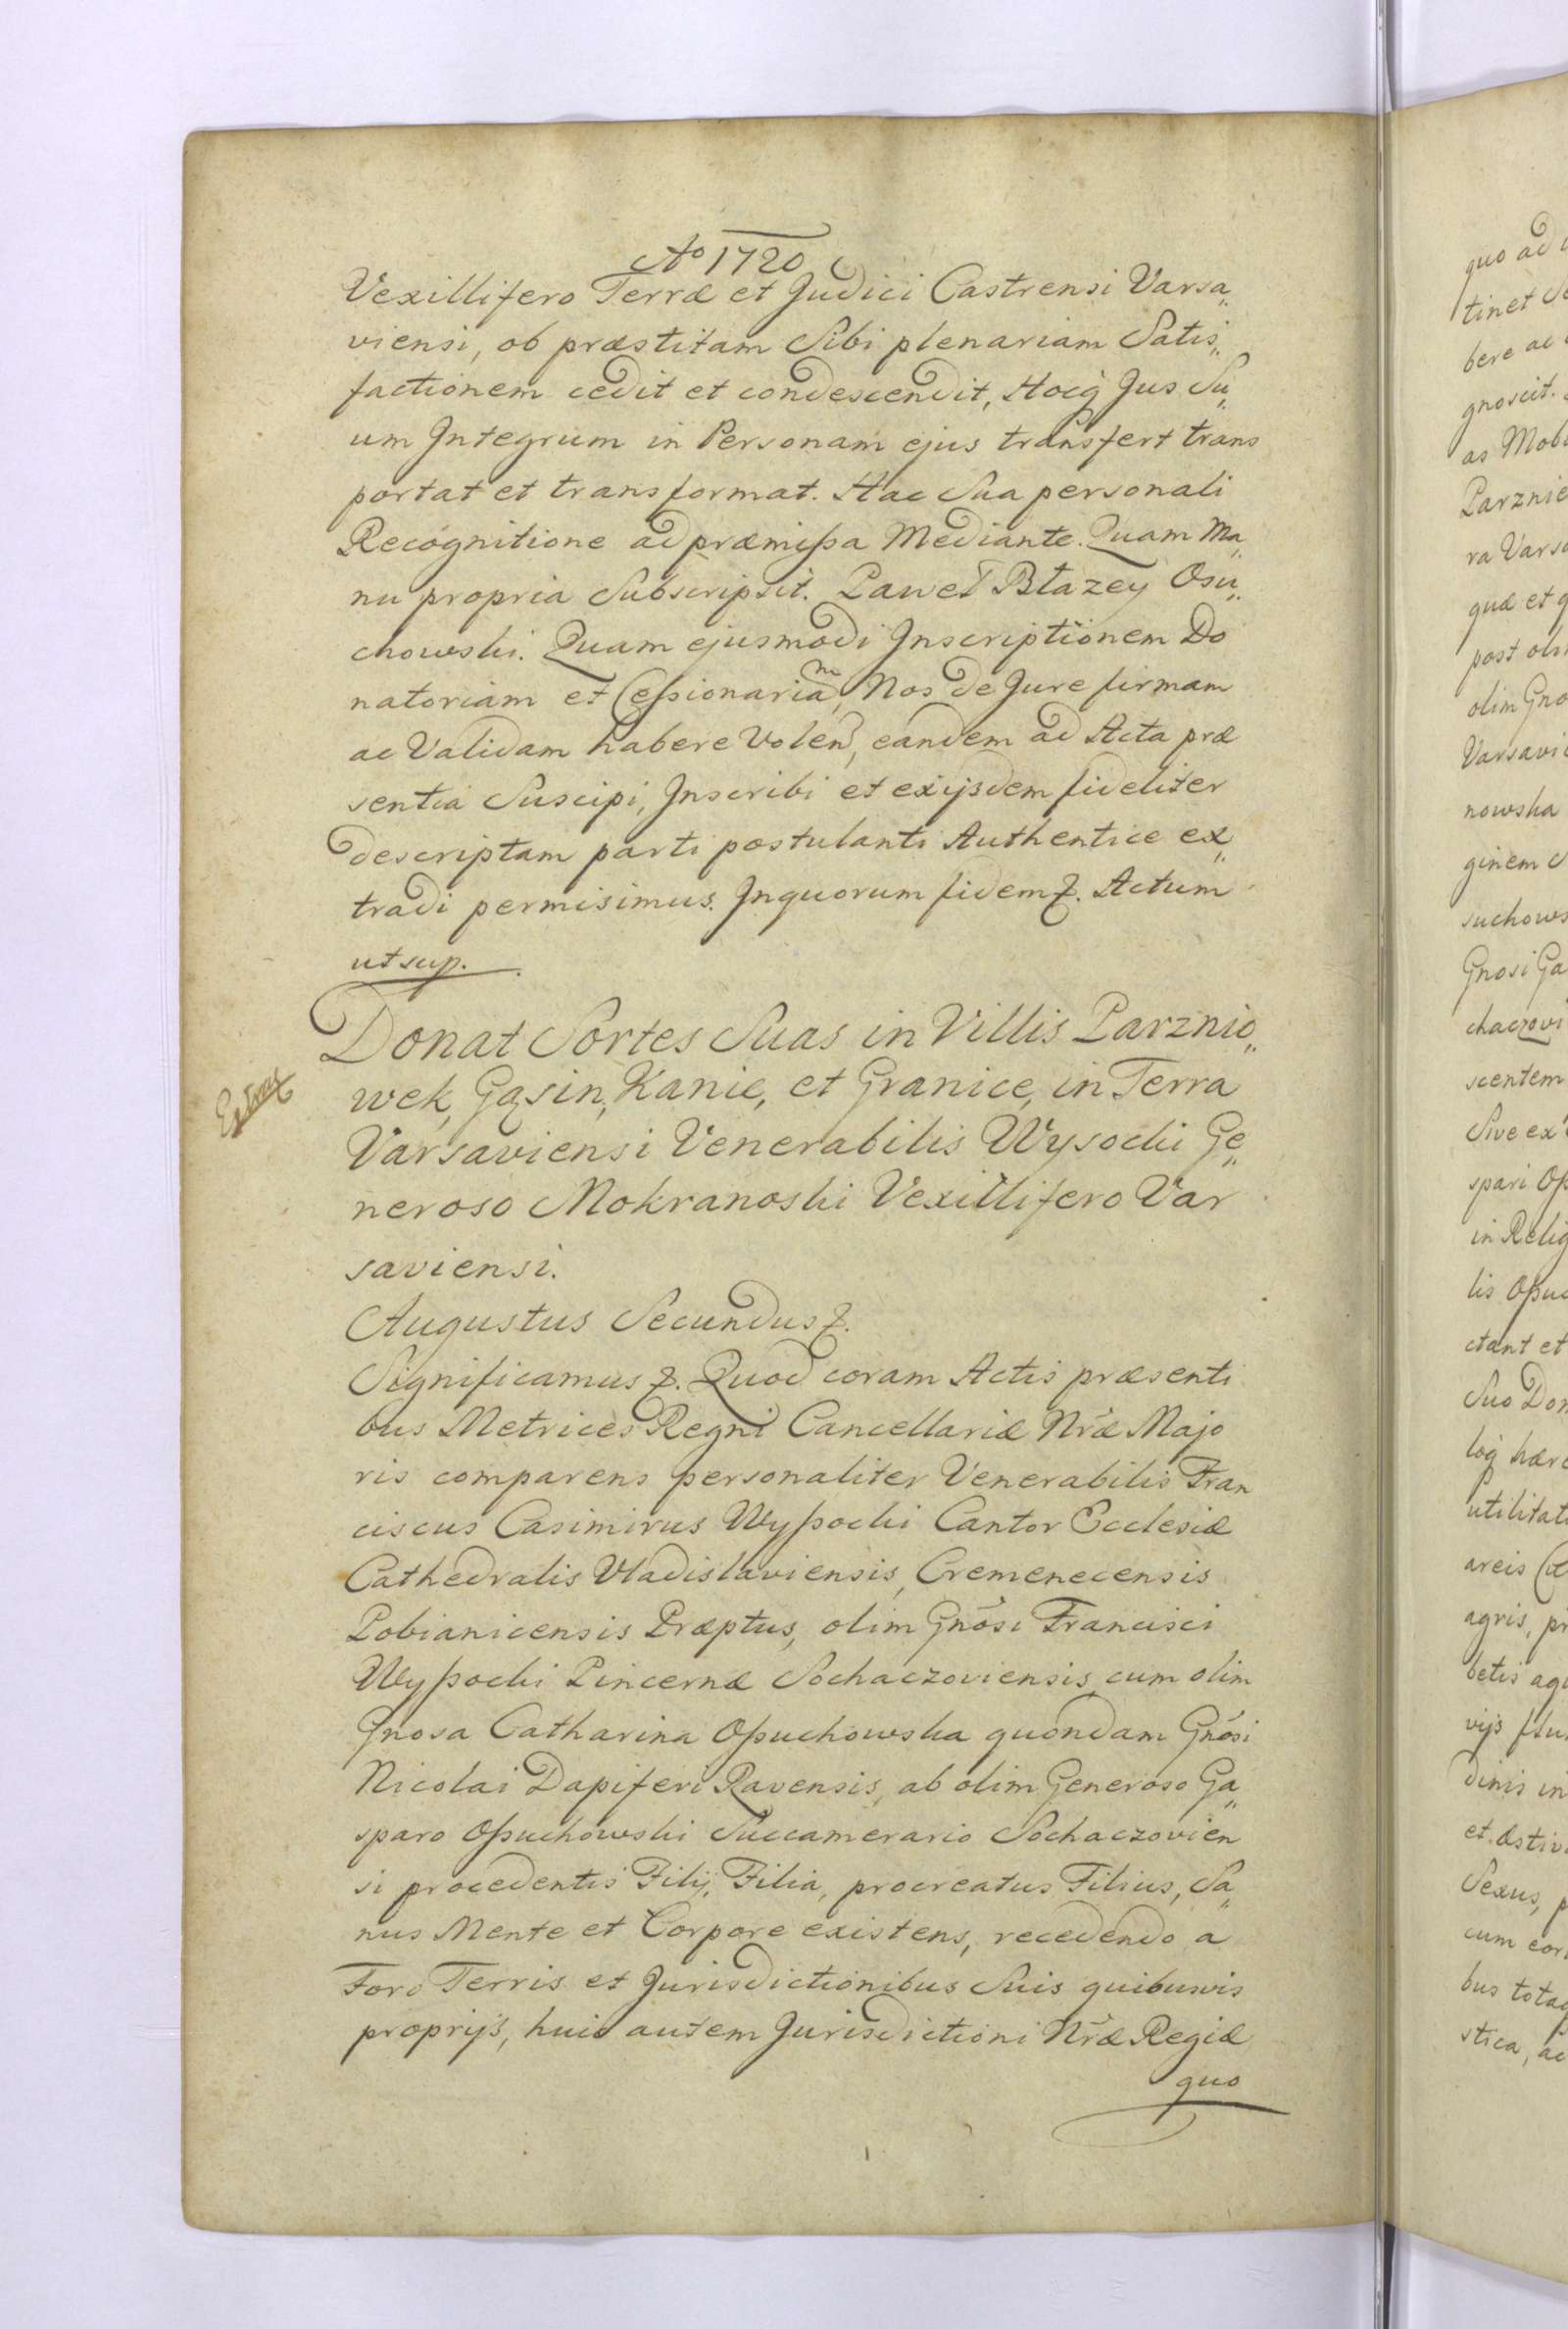 Ao 1720
Vexillifero Terræ et Judici Castrensi Varsa„
viensi, ob præstitam Sibi plenariam Satis„
factionem cedit et condescendit, Hocq Jus Su„
um Integrum in Personam ejus transfert trans
portat et transformat. Hac Sua personali
Recognitione ad præmißa Mediante. Quam Ma„
nu propria Subscripsit. Paweł Błazey Osu„
chowski. Quam ejusmodi Inscriptionem Do
natoriam et Ceßionariam, Nos de Jure firmam
ac Validam habere Volen, eandem ad Acta præ
sentia Suscipi, Inscribi et exijsdem fideliter
descriptam parti postulanti Authentice ex„
tradi permisimus. Inquorum fidem &. Actum
ut sup.
Donat Sortes Suas in Villis Parznie„
wek, Gąsin, Kanie, et Granice, in Terra
Varsaviensi Venerabilis Wysocki Ge„
neroso Mokranoski Vexillifero Var
saviensi.
Augustus Secundus &.
Significamus &. Quod coram Actis præsenti
bus Metrices Regni Cancellariæ Nræ Majo
ris comparens personaliter Venerabilis Fran
ciscus Casimirus Wyßocki Cantor Ecclesiæ
Cathedralis Vladislaviensis, Cremenecensis
Pobianicensis Præptus, olim Gnosi Francisci
Wyßocki Pincernæ Sochaczoviensis, cum olim
Gnosa Catharina Oßuchowska quondam Gnosi
Nicolai Dapiferi Ravensis, ab olim Generoso Ga„
sparo Oßuchowski Succamerario Sochaczovien
si procedentis Filij, Filia, procreatus Filius, Sa„
nus Mente et Corpore existens, recedendo a
Foro Terris et Jurisdictionibus Suis quibusvis
proprijs, huic autem Jurisdictioni Nræ Regiæ
quo
quo ad
tinet
bere ac
gnoscit.
as Mob
Parznie
ra Vars
quæ et q
post oli
olim Gno
Varsavi
nowska
ginem
suchows
Gnosi Ga
chaczovi
scentem
Sive ex
spari Oß
in Relig
lis Oßuc
ctant et
Suo Don
loq hære
utilitat
areis
agris, pr
betis aq
vijs flu
dinis in
et æstiv
Sexus, p
cum cor
bus totaq
stica, ac